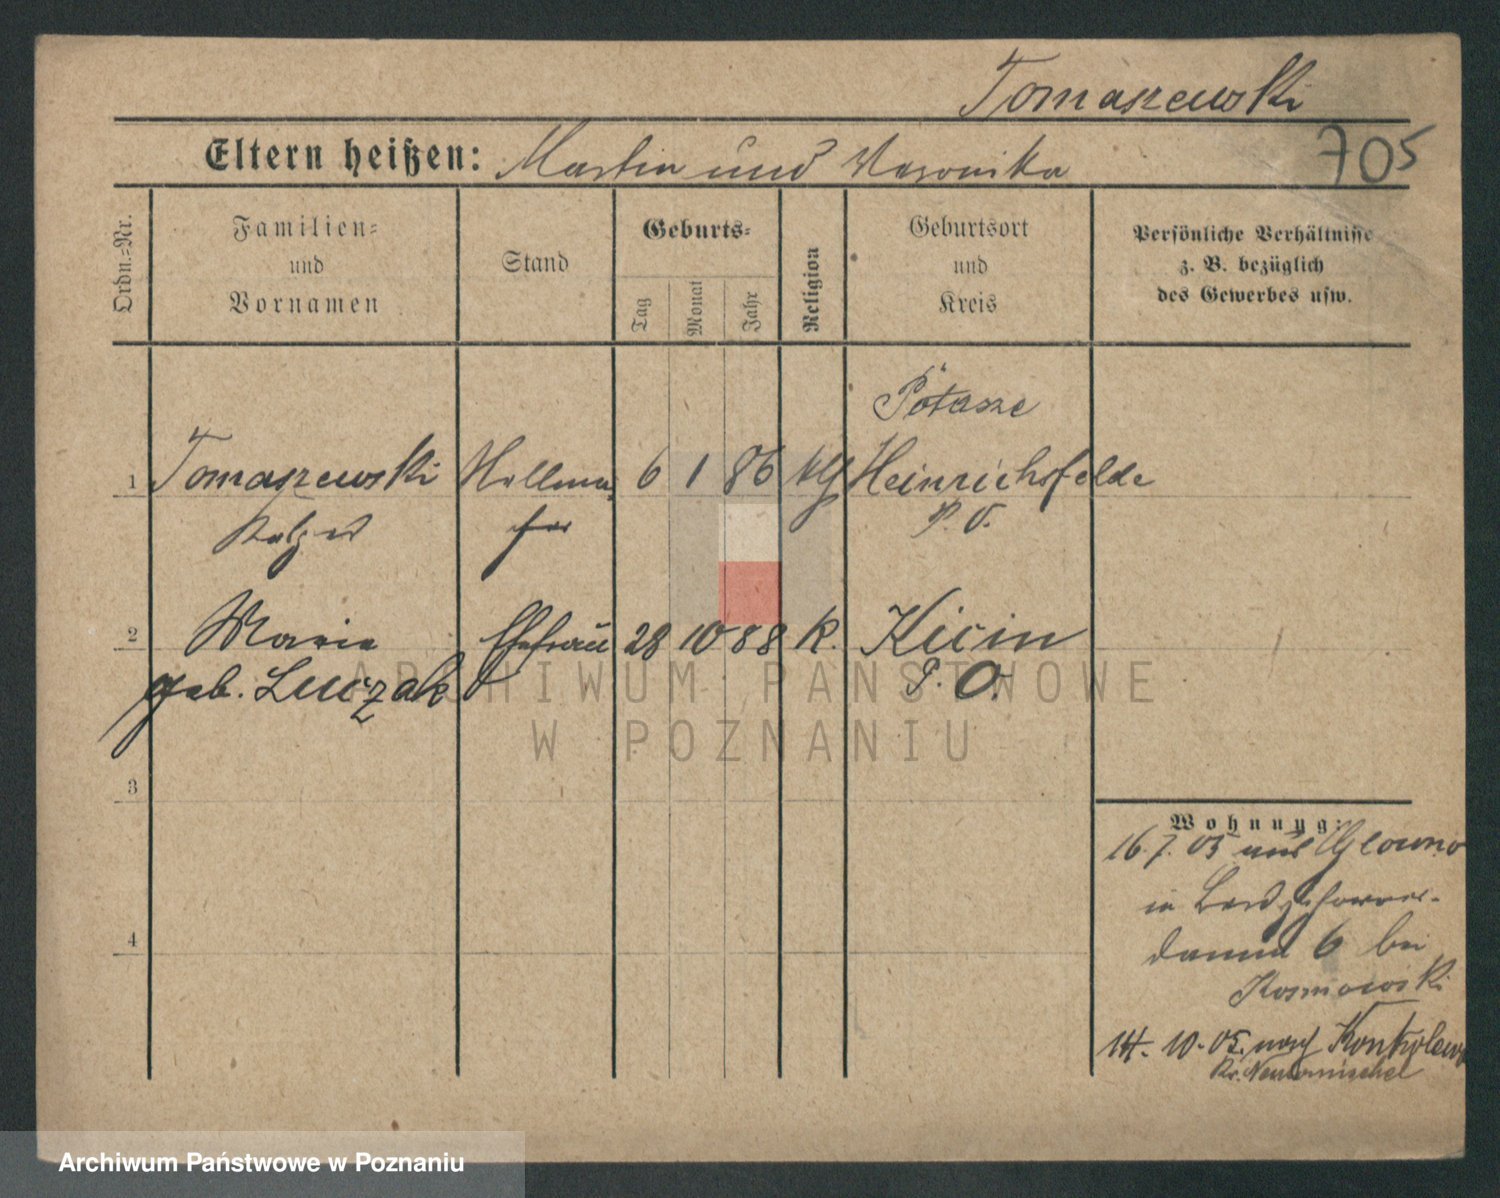 Tomaszewski
705
Eltern heißen: Martin und Veronika
Ordn.-Nr.
Familien-
und
Vornamen
Stand
Geburts-
Tag
Monat
Jahr
Religion
Geburtsort
und
Kreis
Persönliche Verhältnisse
z. B. bezüglich
des Gewerbes usw.
Potasze
1 Tomaszewski 6 1 86 Heinrichsfelde
P. O.
2 Marie Ehefrau 28 10 88 k. Kicin
geb. Luczak P. O.
3
4
Wohnung:
16.7.05 aus Glowno
in
damm 6 bei
Kosmowski
14.10.05. nach Konkolewo
Kr. Neutomischel
ARCHIWUM PAŃSTWOWE
W POZNANIU
Archiwum Państwowe w Poznaniu